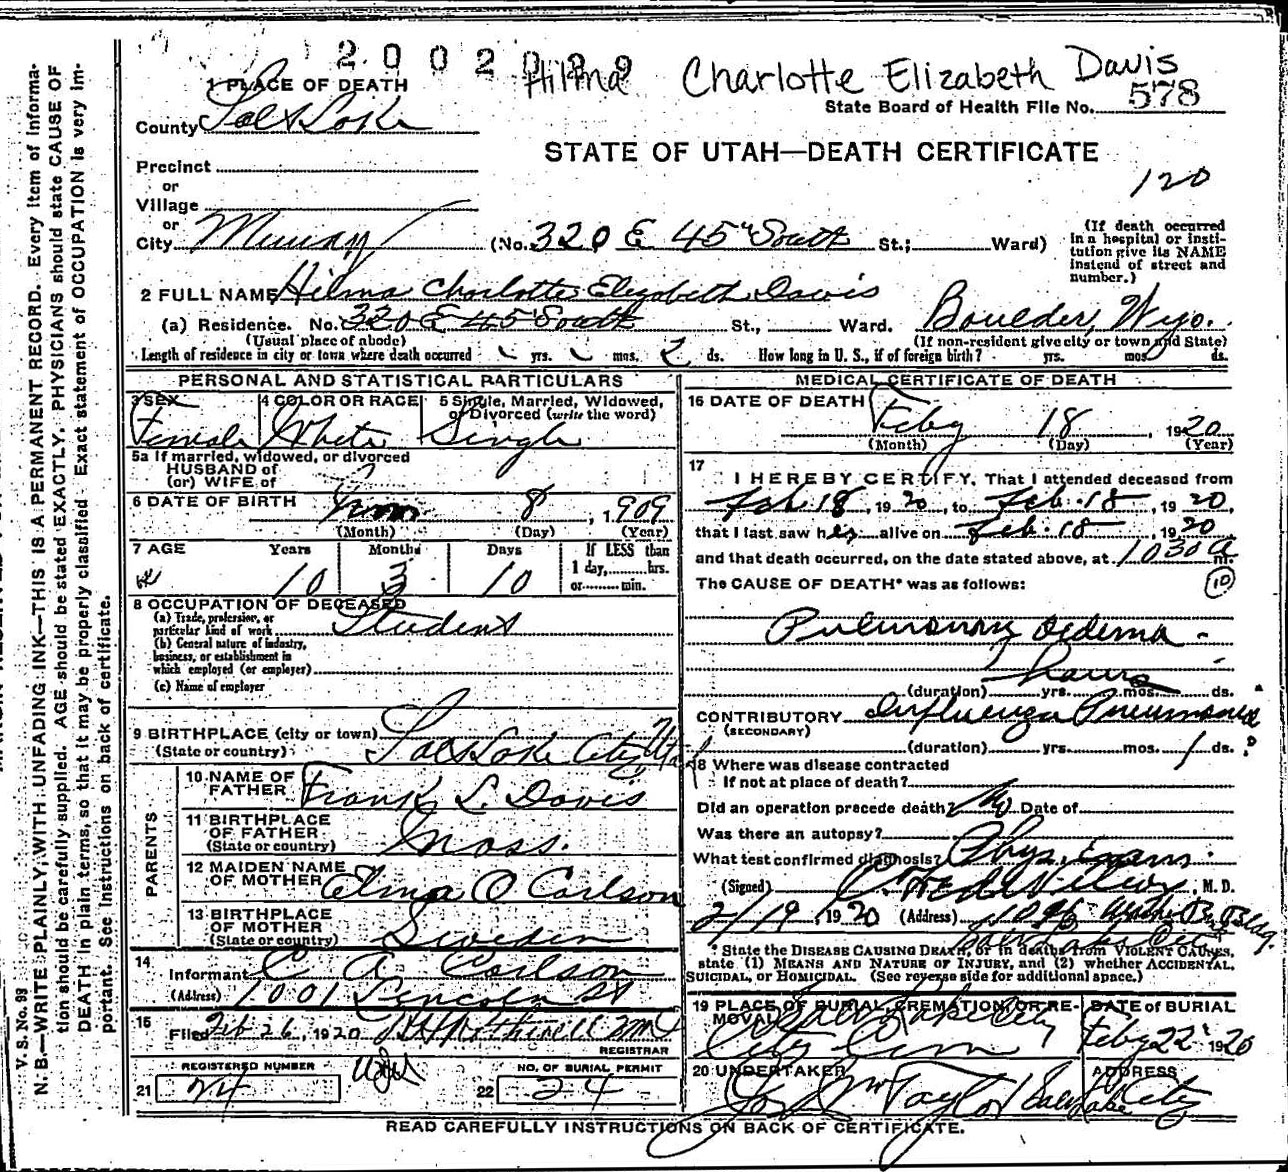 2002089
Hilma Charlotte Elizabeth Davis
1 PLACE OF DEATH
State Board of Health File No. 578
County Salt Lake
STATE OF UTAH—DEATH CERTIFICATE
Precinct
or
120
Village
or
City Murray (No. 320 E 45" South St.; Ward)
(If death occurred in a hospital or institution give its NAME instead of street and number.)
2 FULL NAME Hilma Charlotte Elizabeth Davis
(a) Residence. No. 320 E 45 South St., Ward. Boulder, Wyo.
(Usual place of abode) (If non-resident give city or town and State)
Length of residence in city or town where death occurred yrs. mos. 2 ds. How long in U. S., if of foreign birth? yrs. mos. ds.
PERSONAL AND STATISTICAL PARTICULARS
3 SEX Female
4 COLOR OR RACE White
5 Single, Married, Widowed, or Divorced (write the word) Single
5a If married, widowed, or divorced
HUSBAND of
(or) WIFE of
6 DATE OF BIRTH 8, 1909
(Month) (Day) (Year)
7 AGE Years Months Days If LESS than
10 3 10 1 day, hrs.
or min.
8 OCCUPATION OF DECEASED
(a) Trade, profession, or particular kind of work Student
(b) General nature of industry, business, or establishment in which employed (or employer)
(c) Name of employer
9 BIRTHPLACE (city or town) Salt Lake City, Uta
(State or country)
PARENTS
10 NAME OF FATHER Frank L. Davis
11 BIRTHPLACE OF FATHER Mass.
(State or country)
12 MAIDEN NAME OF MOTHER Elma O Carlson
13 BIRTHPLACE OF MOTHER Sweden
(State or country)
14
Informant C A Carlson
(Address) 1001 Lincoln St
15
Filed Feb 26, 1920
REGISTRAR
REGISTERED NUMBER
21 24
NO. OF BURIAL PERMIT
22 24
MEDICAL CERTIFICATE OF DEATH
16 DATE OF DEATH
Feby 18, 1920
(Month) (Day) (Year)
17 I HEREBY CERTIFY, That I attended deceased from
Feb. 18, 1920, to Feb. 18, 1920,
that I last saw her alive on Feb. 18, 1920
and that death occurred, on the date stated above, at 1030 a m.
The CAUSE OF DEATH* was as follows:
10
Pulmonary oedema -
hours
(duration) yrs. mos. ds.
CONTRIBUTORY Influenza Pneumonia
(SECONDARY)
(duration) yrs. mos. 1 ds. ?
18 Where was disease contracted
If not at place of death?
Did an operation precede death? No Date of
Was there an autopsy?
What test confirmed diagnosis? Phys. Exam.
(Signed) , M. D.
2/19, 1920 (Address) Bldg.
*State the DISEASE CAUSING DEATH, or in deaths from VIOLENT CAUSES, state (1) MEANS AND NATURE OF INJURY, and (2) whether ACCIDENTAL, SUICIDAL, or HOMICIDAL. (See reverse side for additional space.)
19 PLACE OF BURIAL, CREMATION, OR REMOVAL
City Cem
DATE of BURIAL
Feby 22 1920
20 UNDERTAKER
Taylor
ADDRESS
Salt Lake City
READ CAREFULLY INSTRUCTIONS ON BACK OF CERTIFICATE.
V. S. No. 99
N. B.—WRITE PLAINLY, WITH UNFADING INK—THIS IS A PERMANENT RECORD. Every item of information should be carefully supplied. AGE should be stated EXACTLY. PHYSICIANS should state CAUSE OF DEATH in plain terms, so that it may be properly classified. Exact statement of OCCUPATION is very important. See Instructions on back of certificate.